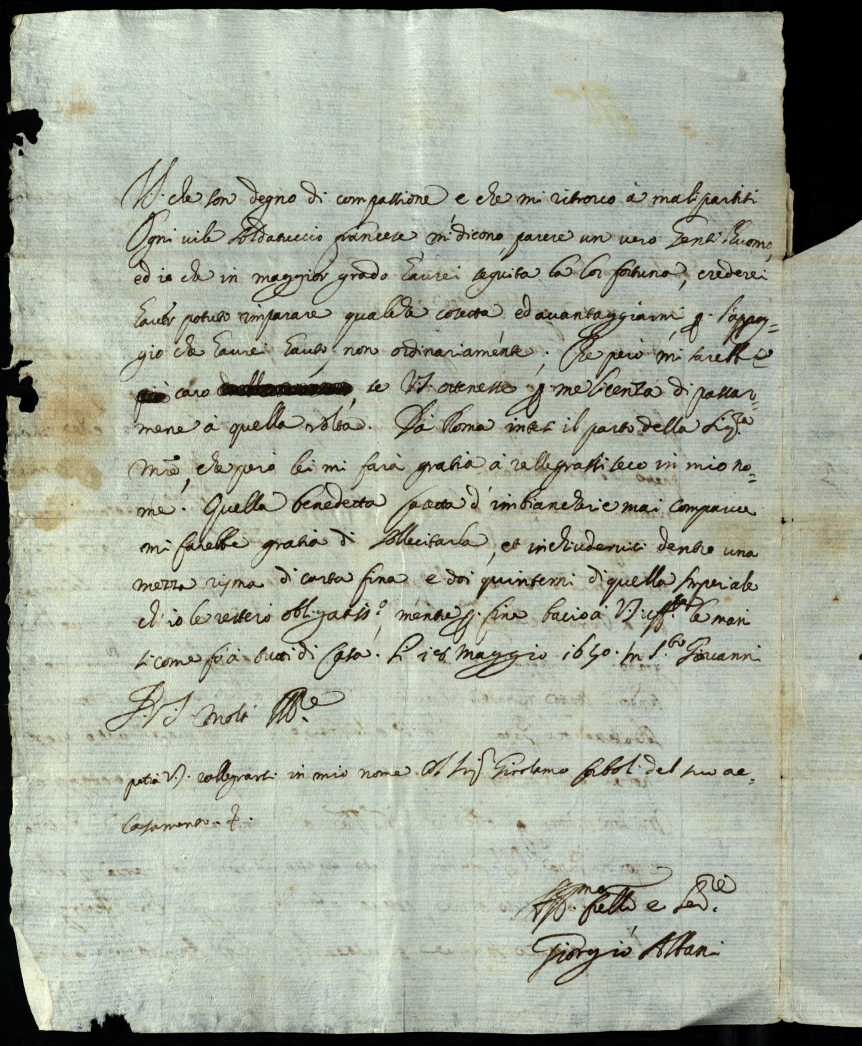 V.S. che son degno di compassione e che mi ritrovo à mali partiti
Ogni vile soldatuccio francese mi dicono, parere un vero Gentilhuomo,
ed io che in maggior grado haurei seguita la lor fortuna, crederei
hauer potuto imparare qualche cosetta ed avantaggiarmi p. l'appog=
gio che haurei hauto non ordinariamente; Che però mi sarebbe
più caro se V.S. ottenesse p. me licenza di passar=
mene à quella volta. Da Roma intesi il parto della Sig.ra
M.re, che però lei mi farà gratia à rallegrarsi seco in mio no=
me. Quella benedetta d'imbiancherie mai comparue
mi farebbe gratia di sollecitarla, et inchiuderuici dentro una
mezza risma di carta fina e doi quinterni di quella Imperiale
ch'io le resterò obligatiss.o mentre p. fine bacio à V.S. le mani
si come fò à tutti di Casa. Li Maggio 1650. In S.to Giovanni
D. V.S. Molt' Ill.re
potrà V.S. rallegrarsi in mio nome col Sig.r Girolamo del suo ac=
casamento.
Aff.mo fr.ello e Ser.re
Giorgio Albani